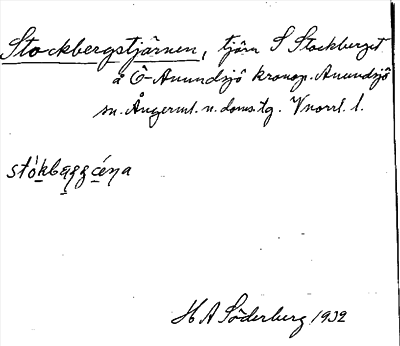 Stockbergstjärnen, tjärn S Stockberget
å Ö-Anundsjö kronop. Anundsjö
sn. Ångerml. n. doms.tg. Vnorrl. l.
H A Söderberg 1932